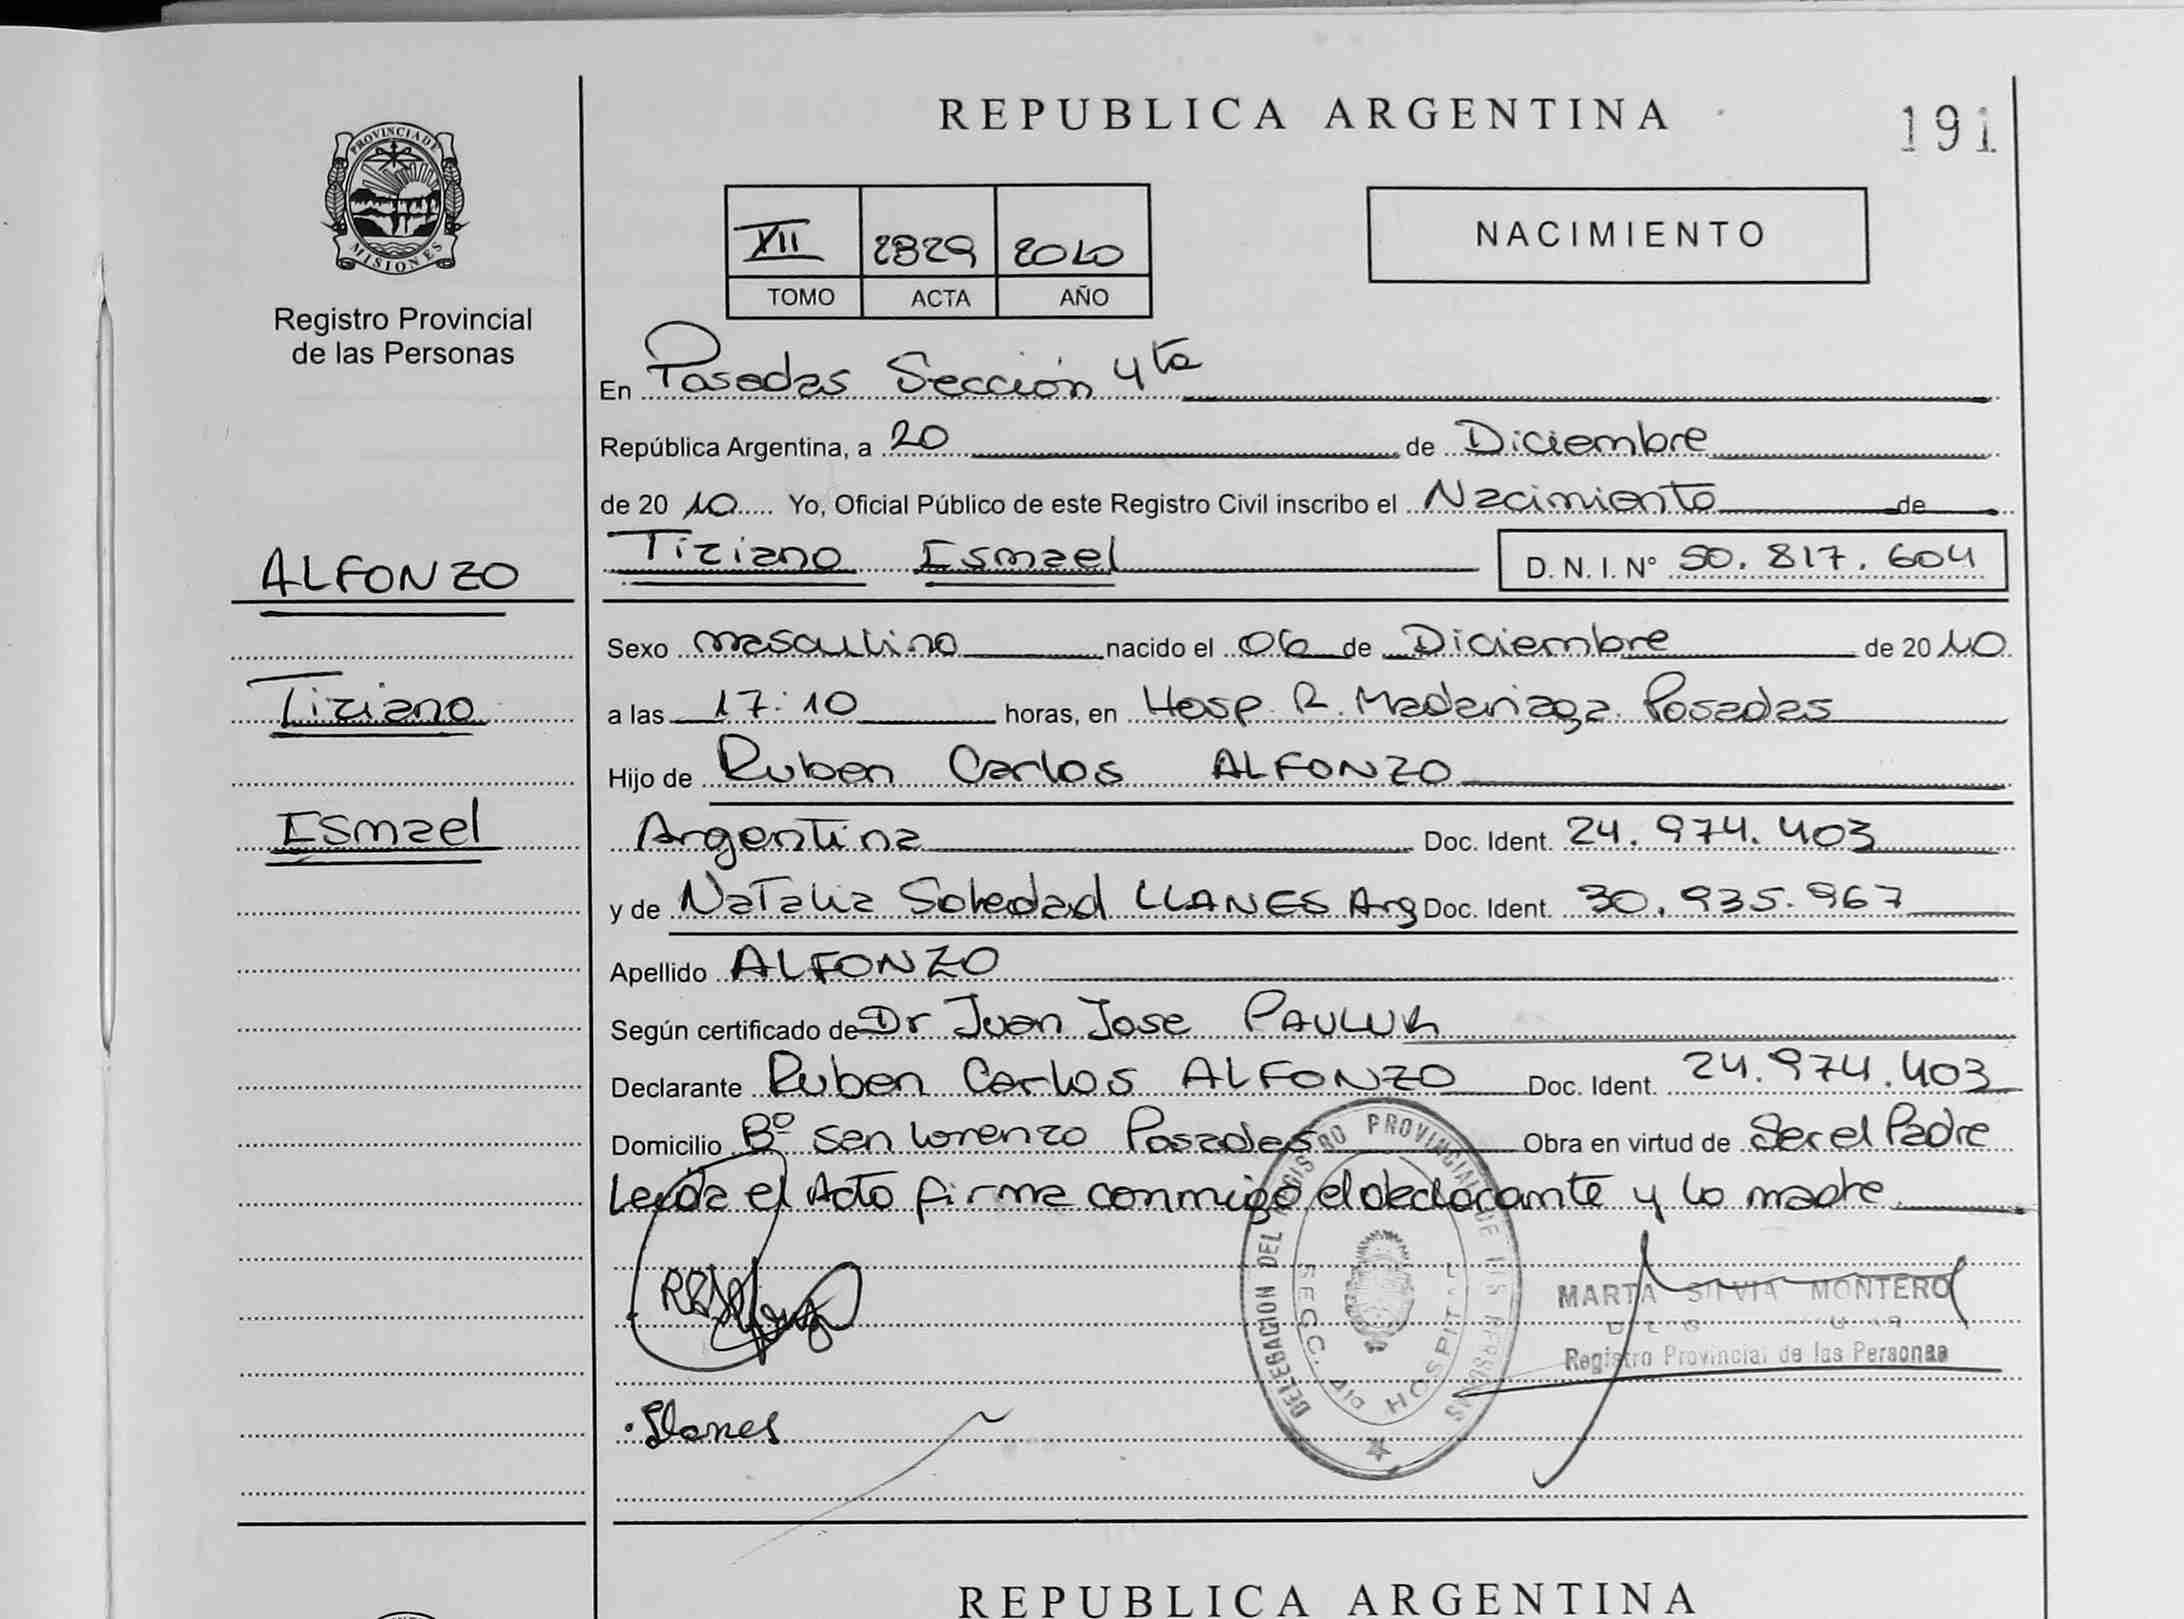 REPUBLICA ARGENTINA
191
PROVINCIA DE
MISIONES
Registro Provincial
de las Personas
VII 2829 2010
TOMO ACTA AÑO
NACIMIENTO
En Posadas Sección 4ta
República Argentina, a 20 de Diciembre
de 20 10 Yo, Oficial Público de este Registro Civil inscribo el Nacimiento de
ALFONZO
Tiziano Ismael D. N. I. N° 50.817.604
Sexo masculino nacido el 06 de Diciembre de 20 10
Tiziano
a las 17:10 horas, en Hosp. R. Madariaga Posadas
Hijo de Ruben Carlos ALFONZO
Ismael
Argentina Doc. Ident. 24.974.403
y de Natalia Soledad LLANES Arg Doc. Ident. 30.935.967
Apellido ALFONZO
Según certificado de Dr Juan Jose PAULUK
Declarante Ruben Carlos ALFONZO Doc. Ident. 24.974.403
Domicilio Bº San Lorenzo Posadas Obra en virtud de Ser el Padre
Leida el Acto firma conmigo el declarante y la madre
DELEGACION DEL REGISTRO PROVINCIAL DE LAS PERSONAS
SECC. DIV HOSPITAL
MARTA SILVIA MONTERO
Registro Provincial de las Personas
Llanes
REPUBLICA ARGENTINA